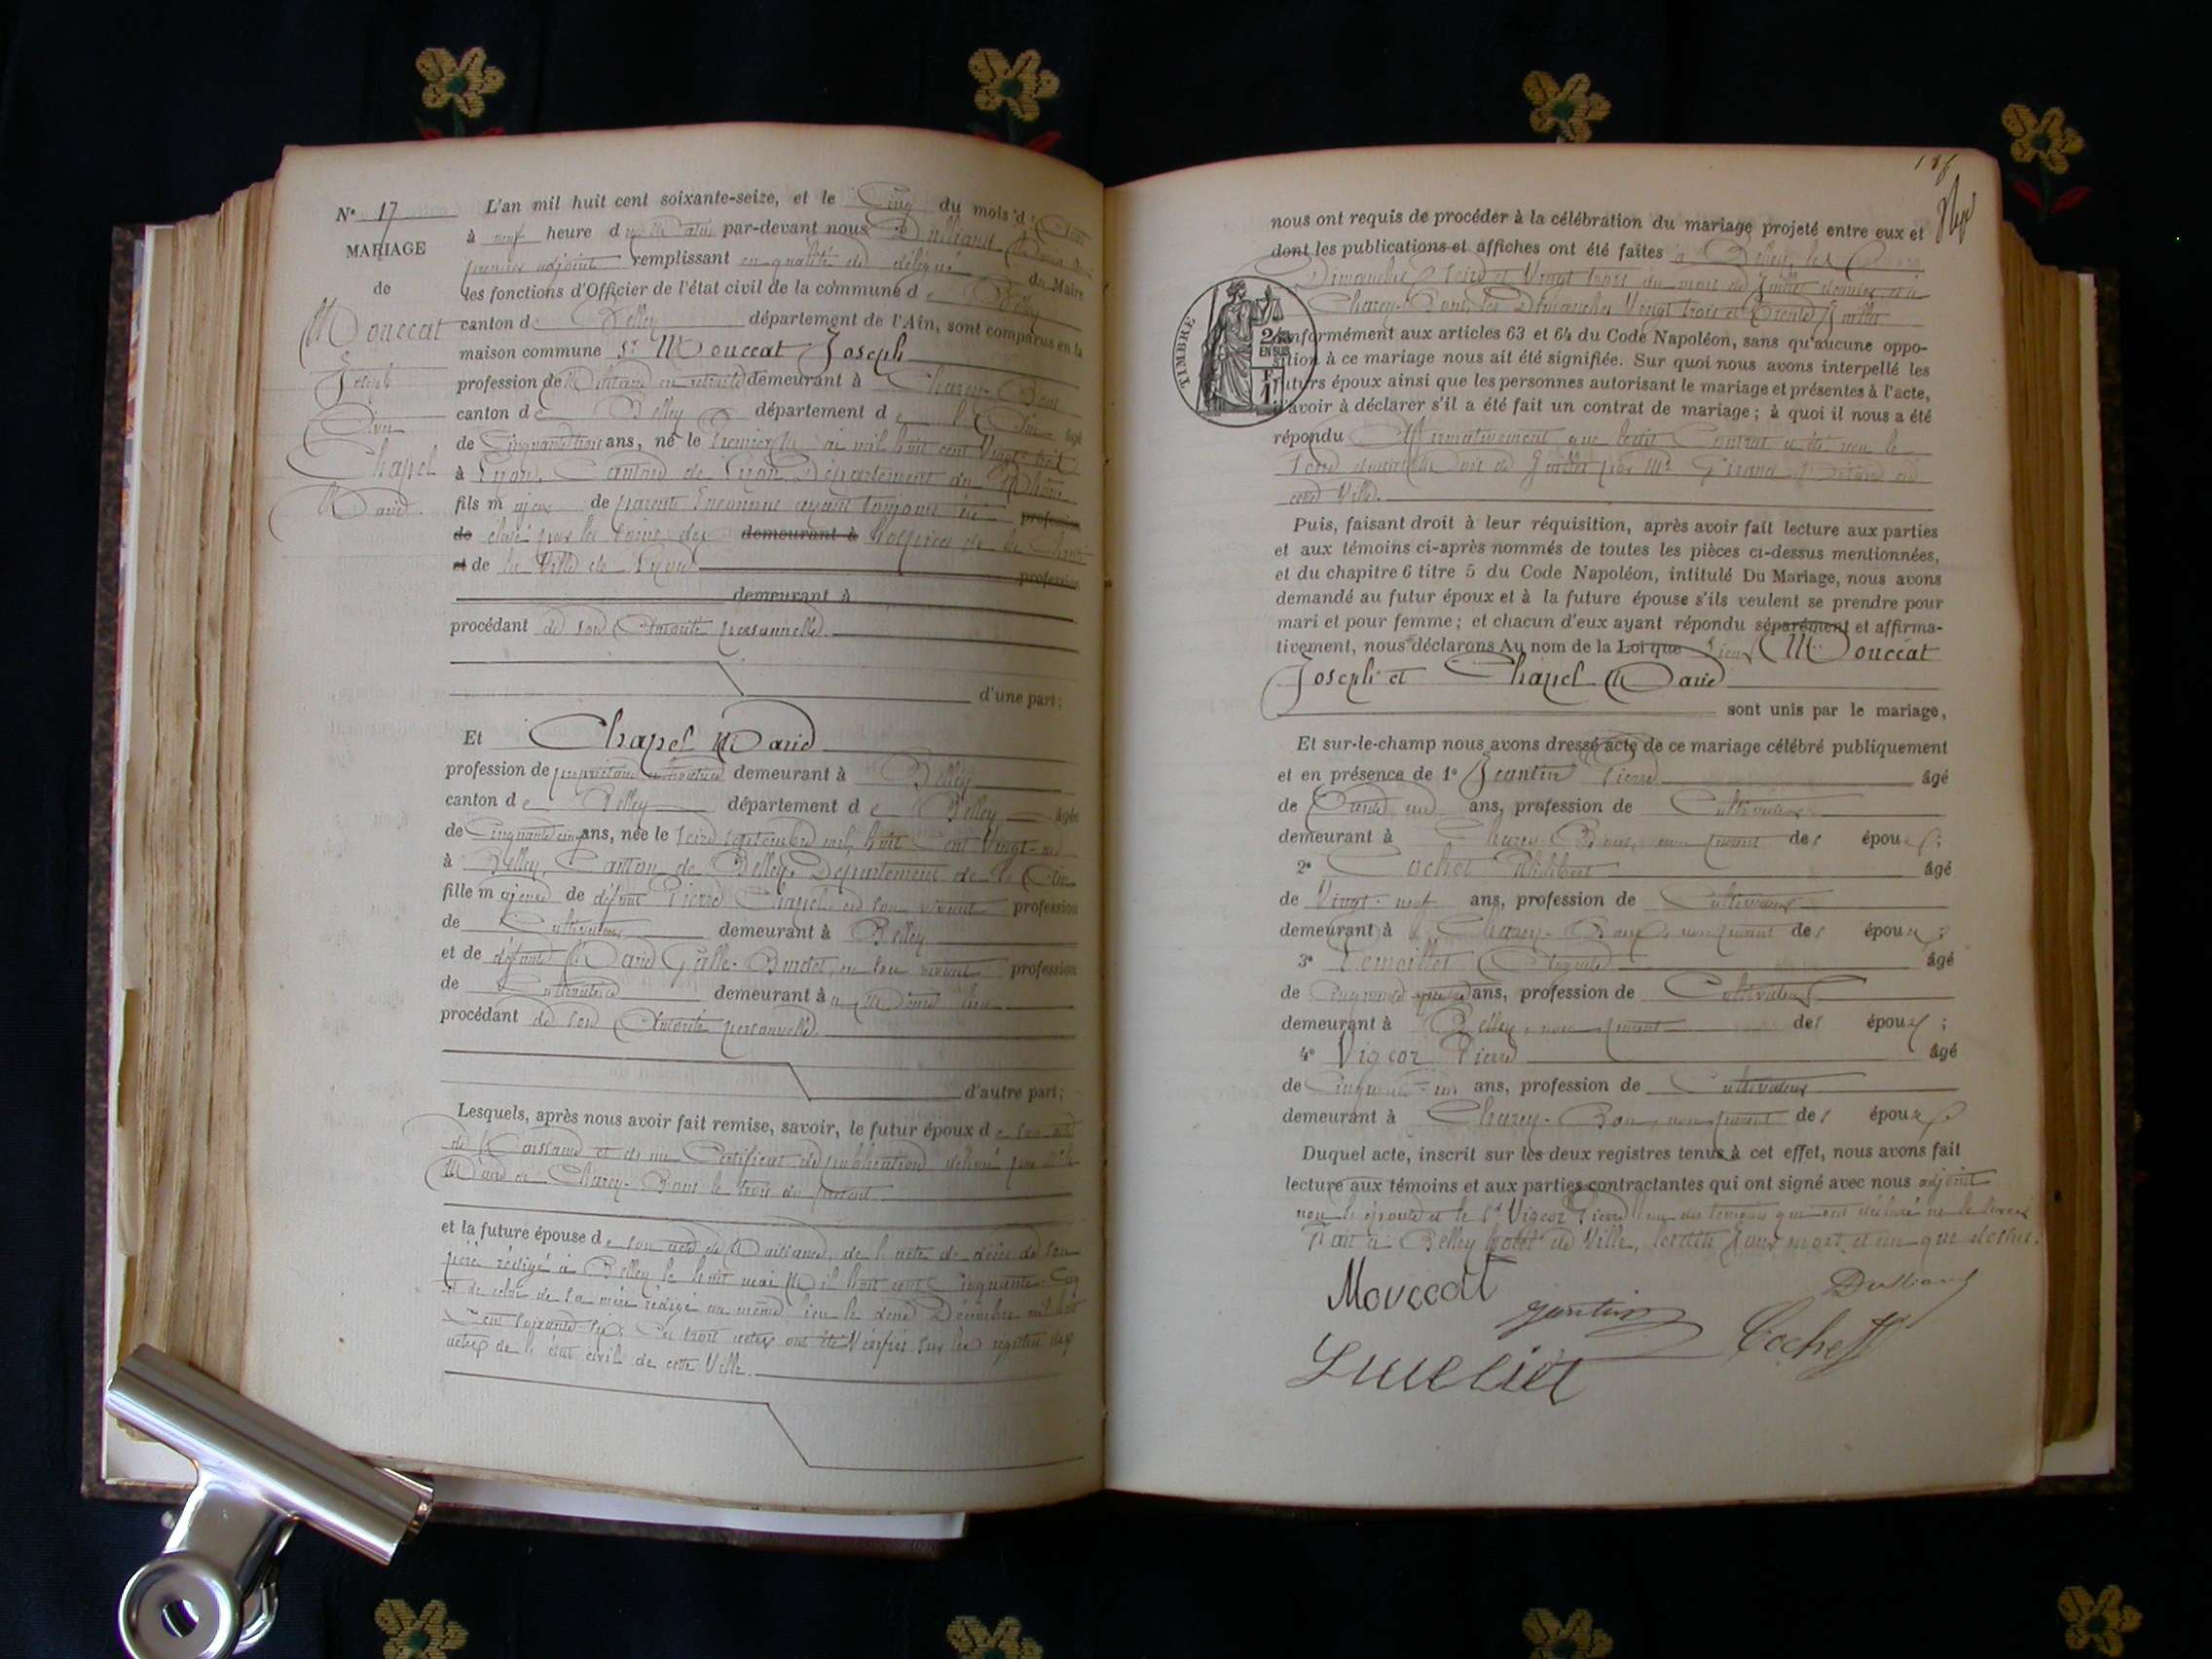 N° 17
MARIAGE
de
Mouccat
Joseph
Avec
Chapel
Marie
L'an mil huit cent soixante-seize, et le Cinq du mois d'
à neuf heure d u Matin par-devant nous Dulliand
premier adjoint remplissant en qualité de délégué du Maire
les fonctions d'Officier de l'état civil de la commune d e Belley
canton de Belley département de l'Ain, sont comparus en la
maison commune Sr Mouccat Joseph
profession de Militaire en retraite demeurant à Charey-Bons
canton d e Belley département d e l'Ain âgé
de Cinquante trois ans, né le Premier Mai mil huit cent Vingt-trois
à Lyon, Canton de Lyon, Département du Rhône
fils m ajeur de parents Inconnus ayant toujours été profession
de élevé par les soins des demeurant à hospices de la Charité
et de la Ville de Lyon profession
demeurant à
procédant de son Autorité personnelle.
d'une part;
Et Chapel Marie
profession de propriétaire cultivatrice demeurant à Belley
canton d e Belley département d e Belley âgée
de Cinquante cinq ans, née le seize septembre mil huit Cent Vingt-
à Belley, Canton de Belley, Département de l'Ain
fille m ajeure de défunt Pierre Chapel en son vivant profession
de Cultivateur demeurant à Belley
et de défunte Marie Gallo-Burdet, en son vivant profession
de Cultivatrice demeurant à au Même lieu
procédant de son Autorité personnelle.
d'autre part;
Lesquels, après nous avoir fait remise, savoir, le futur époux d e son acte
de Naissance et de un Certificat de publication délivré par Mr le
Maire de Charey-Bons le trois du présent.
et la future épouse d e son acte de Naissance, de l'acte de décès de son
père rédigé à Belley le huit mai Mil huit cent Cinquante-
et de celui de sa mère rédigé au même lieu le onze Décembre mil huit
Cent soixante six. Ces trois actes ont été Vérifiés sur les registres des
actes de l'état civil de cette Ville.
nous ont requis de procéder à la célébration du mariage projeté entre eux et
dont les publications et affiches ont été faites à Belley, les
Dimanches seize et Vingt trois du mois de Juillet dernier, et à
Charey-Bons, les Dimanches Vingt trois et Trente Juillet
conformément aux articles 63 et 64 du Code Napoléon, sans qu'aucune oppo-
sition à ce mariage nous ait été signifiée. Sur quoi nous avons interpellé les
futurs époux ainsi que les personnes autorisant le mariage et présentes à l'acte,
d'avoir à déclarer s'il a été fait un contrat de mariage; à quoi il nous a été
répondu Affirmativement que ledit Contrat a été reçu le
seize du mois de Juillet par Me Giraud Notaire en
cette Ville.
TIMBRE
EN SUS
Puis, faisant droit à leur réquisition, après avoir fait lecture aux parties
et aux témoins ci-après nommés de toutes les pièces ci-dessus mentionnées,
et du chapitre 6 titre 5 du Code Napoléon, intitulé Du Mariage, nous avons
demandé au futur époux et à la future épouse s'ils veulent se prendre pour
mari et pour femme; et chacun d'eux ayant répondu séparément et affirma-
tivement, nous déclarons Au nom de la Loi que Sieur Mouccat
Joseph et Chapel Marie
sont unis par le mariage,
Et sur-le-champ nous avons dressé acte de ce mariage célébré publiquement
et en présence de 1° Jeantin Pierre âgé
de Trente ans, profession de Cultivateur
demeurant à Charey-Bons, non parent des époux;
2° Cochet Philibert âgé
de Vingt-neuf ans, profession de Cultivateur
demeurant à Charey-Bons, non parent des époux;
3° âgé
de Cinquante quatre ans, profession de Cultivateur
demeurant à Belley, non parent des époux;
4° Vigeoz Pierre âgé
de Cinquante-un ans, profession de Cultivateur
demeurant à Charey-Bons, non parent des époux
Duquel acte, inscrit sur les deux registres tenus à cet effet, nous avons fait
lecture aux témoins et aux parties contractantes qui ont signé avec nous adjoint
non l'épouse et le Sr Vigeoz Pierre l'un des témoins qui ont déclaré ne le savoir
Fait à Belley hôtel de Ville, lesdits jour, mois et an que dessus.
Mouccat
Jeantin
Dulliand
Cochet